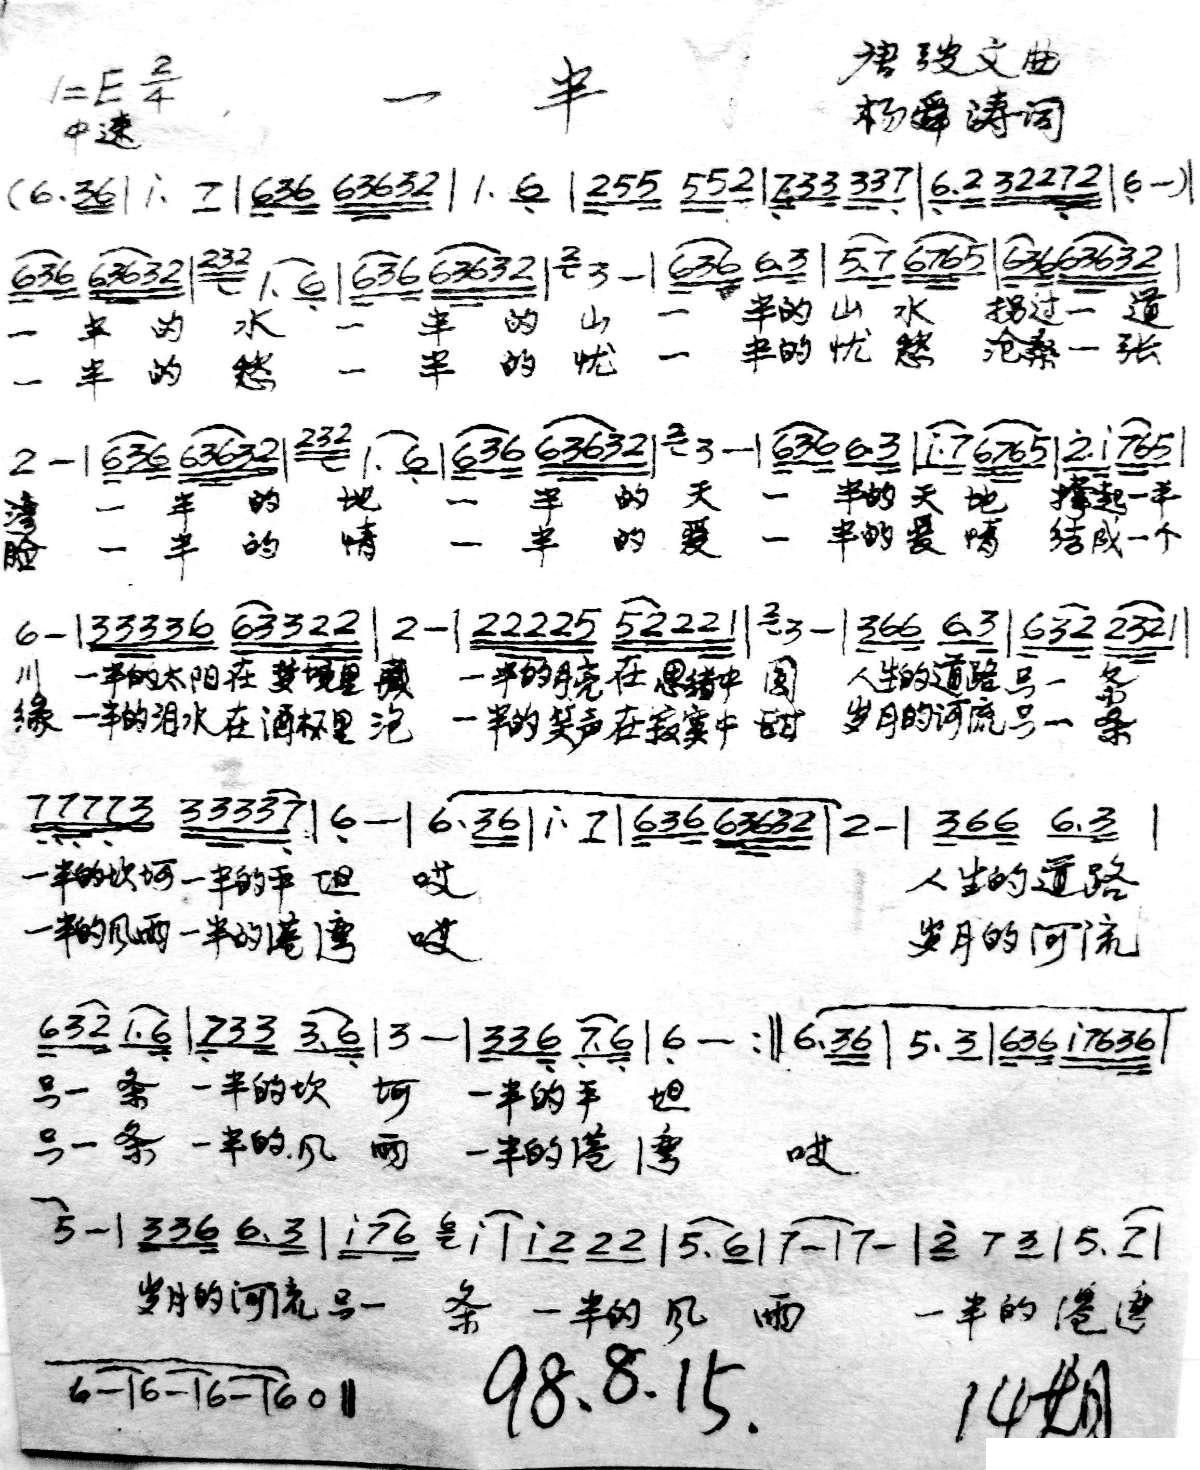 1=E 2/4
中速
一 半
唐 文曲
杨舜涛词
(6.36|i. 7|636 63632|1. 6|255 552|733 337|6.2 32272|6 —)|
636 63632|232 1. 6|636 63632|2 3 —|636 6.3|5.7 6765|636 63632|
一 半 的 水 一 半 的 山 一 半的 山 水 拐过一 道
一 半 的 愁 一 半 的 忧 一 半的 忧 愁 沧桑一 张
2 —|636 63632|232 1. 6|636 63632|2 3 —|636 6.3|i.7 6765|2.i 765|
湾 一 半 的 地 一 半 的 天 一 半的 天 地 撑起一半
脸 一 半 的 情 一 半 的 爱 一 半的 爱 情 结成一个
6 —|33336 63322|2 —|22225 52221|2 3 —|366 6.3|632 2321|
川 一半的太阳在 梦境里 藏 一半的月亮在 思绪中 圆 人生的道路 只一 条
缘 一半的泪水在 酒杯里 泡 一半的笑声在 寂寞中 甜 岁月的河流 只一 条
77773 33337|6 —|6. 36|i. 7|636 63632|2 —|366 6.3|
一半的坎坷 一半的平 坦 哎 人生的道路
一半的风雨 一半的港 湾 哎 岁月的河流
632 1.6|733 3.6|3 —|336 7.6|6 — :‖ 6. 36|5. 3|636 i7636|
只一 条 一半的坎 坷 一半的平 坦
只一条 一半的风 雨 一半的港 湾 哎
5 —|336 6.3|i76 6 i|i2 22|5. 6|7 —|7 —|2 7 3|5. 7|
岁月的河流只一 条 一半的风 雨 一半的港 湾
6 —|6 —|6 —|6 0‖
98.8.15.
14期